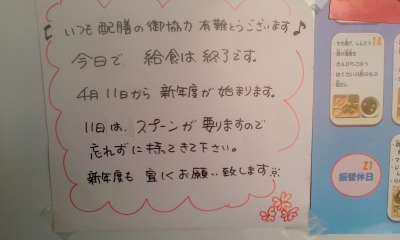 いつも 配膳の 御協力 有難とうございます♪
今日で 給食は 終了です。
4月11日から 新年度が 始まります。
11日は、スプーンが 要りますので
忘れずに 持ってきて 下さい。
新年度も 宜しくお願い致します
21
振替休日